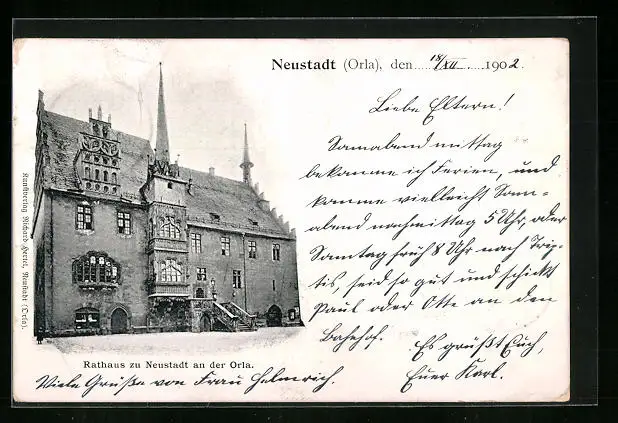 Neustadt (Orla), den 18/XII 1902.
Liebe Eltern!
Sonnabend mittag
bekomme ich Ferien, und
komme vielleicht Sonn-
abend nachmittag 5 Uhr, oder
Sonntag früh 8 Uhr nach Trip-
tis, seid so gut und schickt
Paul oder Otto an den
Bahnhof.
Es grüßt Euch,
Euer Karl.
Kunstverlag Richard Hertel, Neustadt (Orla).
Rathaus zu Neustadt an der Orla.
Viele Grüße von Frau Helmrich.